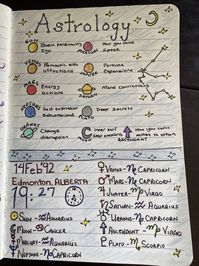 Astrology
SUN
Basic personality
Ego
MERCURY
How you think
Speak
VENUS
Romantic side
attractions
JUPITER
Fortune
Expansions
MARS
Energy
Actions
SATURN
NEPTUNE
Self expression
PLUTO
Deep secrets
URANUS
Change
disruption
MOON
Inner self
ASCENDANT
How you come
across to others
14 Feb '92
Edmonton, ALBERTA
19:27
Venus - Capricorn
Mars - Capricorn
Jupiter - Virgo
Saturn - Aquarius
Uranus - Capricorn
Ascendant - Virgo
Pluto - Scorpio
Sun - Aquarius
Moon - Cancer
Mercury - Aquarius
Neptune - Capricorn